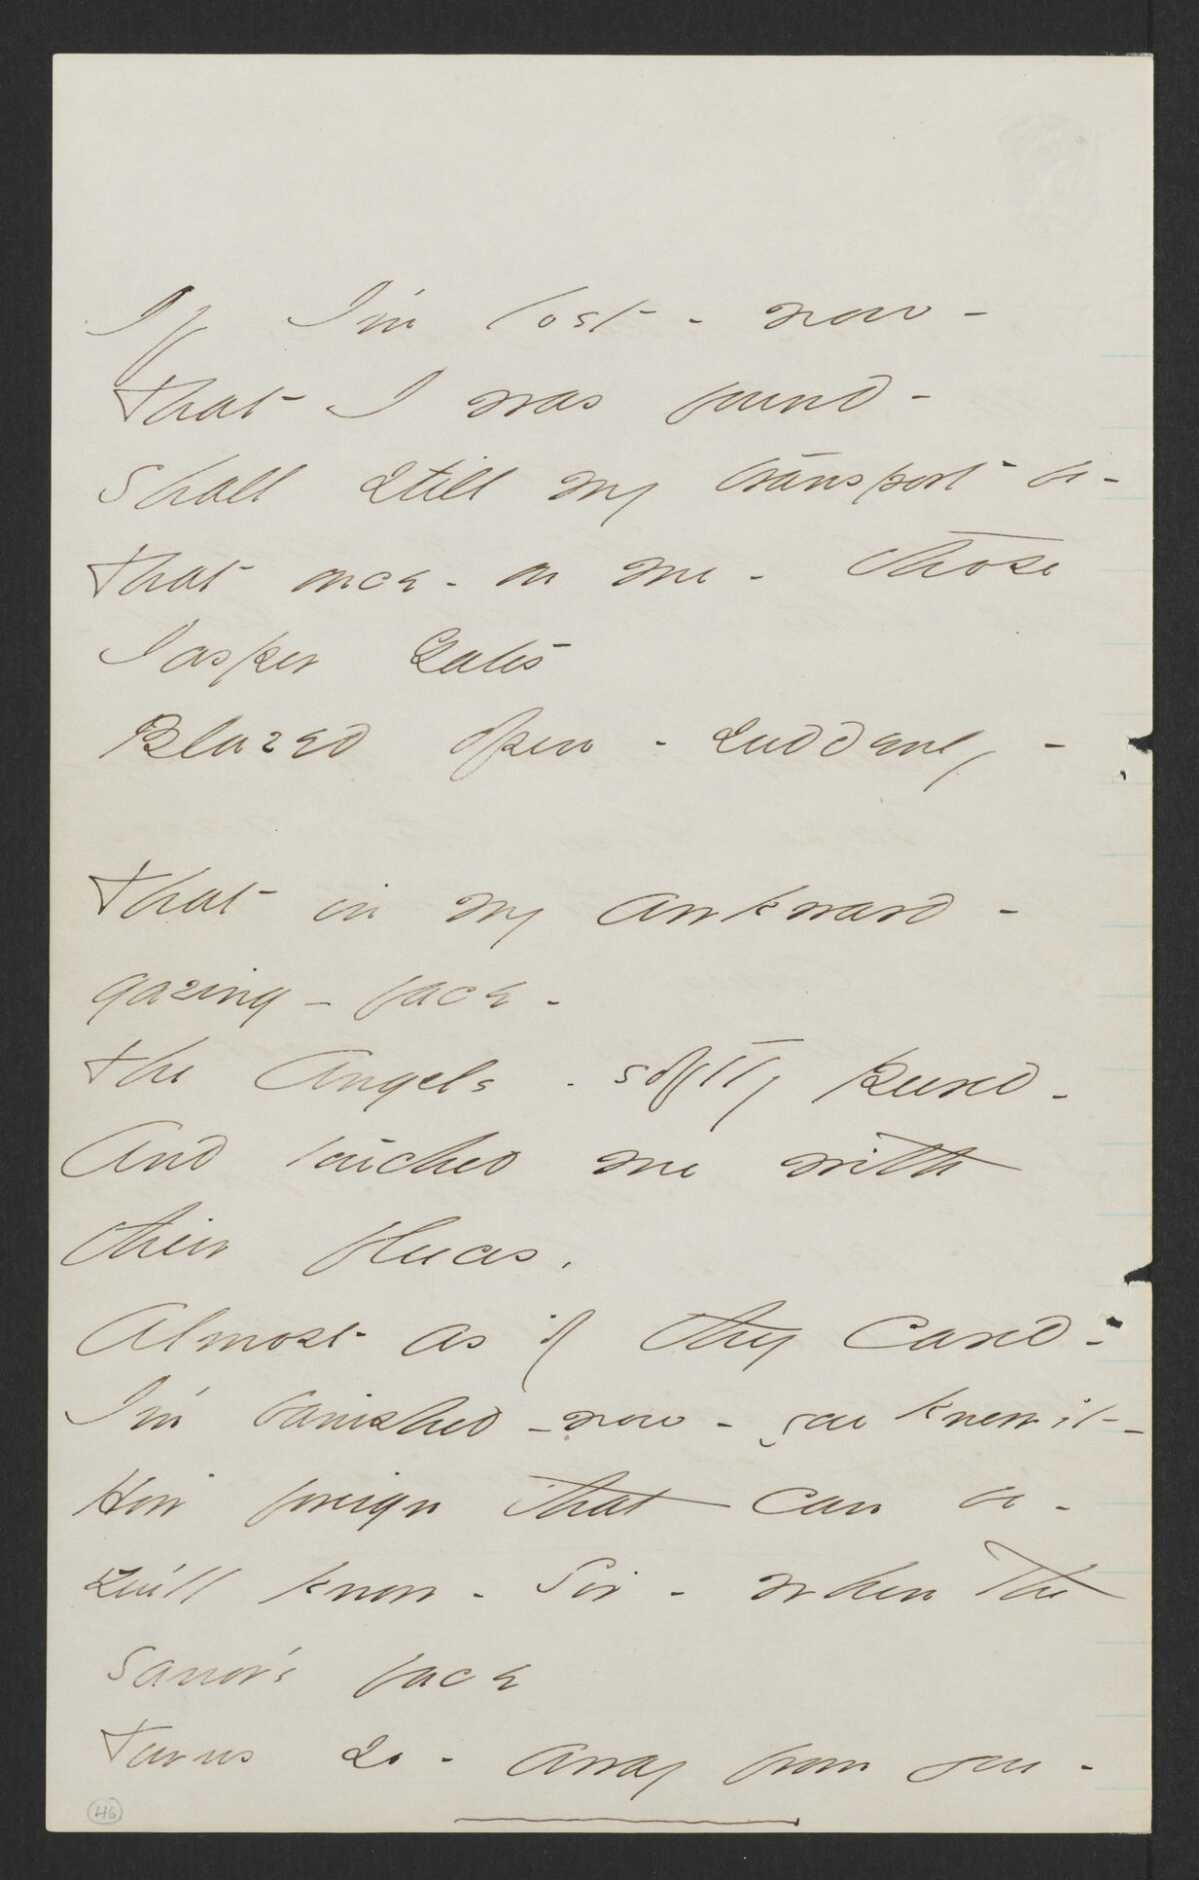 If I'm lost - now -
that I was found -
Shall still my transport be -
that once - on me - those
Jasper Gates
Blazed open - suddenly -
that in my awkward -
gazing - face -
the Angels - softly peered -
And touched me with
their fleeces,
Almost as if they cared -
I'm banished - now - you know it -
How foreign that can be -
You'll know - Sir - when the
Savior's face
turns so - away from you -
46